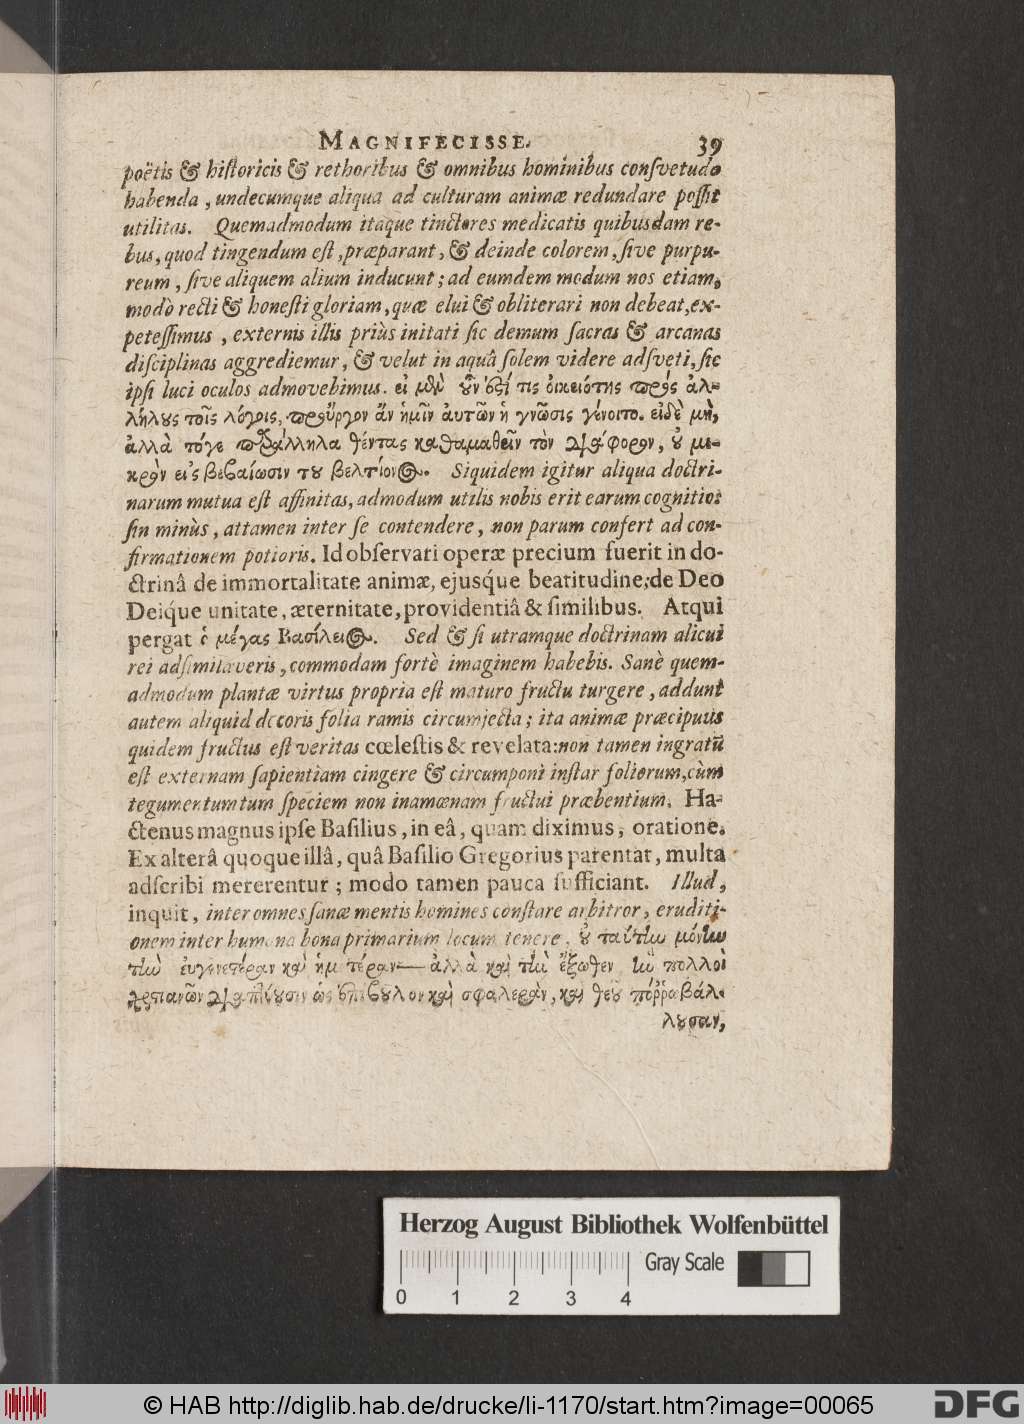 MAGNIFECISSE. 39
poëtis & historicis & rethoribus & omnibus hominibus consvetudo
habenda, undecumque aliqua ad culturam animæ redundare possit
utilitas. Quemadmodum itaque tinctores medicatis quibusdam re-
bus, quod tingendum est, præparant, & deinde colorem, sive purpu-
reum, sive aliquem alium inducunt; ad eumdem modum nos etiam,
modò recti & honesti gloriam, quæ elui & obliterari non debeat, ex-
petessimus, externis illis priùs initati sic demum sacras & arcanas
disciplinas aggrediemur, & velut in aquâ solem videre adsveti, sic
ipsi luci oculos admovebimus. εἰ μὲν οὖν ἐστί τις οἰκειότης πρὸς ἀλ-
λήλους τοῖς λόγοις, προὔργου ἂν ἡμῖν αὐτῶν ἡ γνῶσις γένοιτο. εἰδὲ μὴ,
ἀλλὰ τόγε παράλληλα θέντας καταμαθεῖν τὸν διάφορον, οὐ μι-
κρὸν εἰς βεβαίωσιν του βελτίονος. Siquidem igitur aliqua doctri-
narum mutua est affinitas, admodum utilis nobis erit earum cognitio:
sin minùs, attamen inter se contendere, non parum confert ad con-
firmationem potioris. Id observari operæ precium fuerit in do-
ctrinâ de immortalitate animæ, ejusq́ue beatitudine; de Deo
Deiq́ue unitate, æternitate, providentiâ & similibus. Atqui
pergat ὁ μέγας Βασίλειος. Sed & si utramque doctrinam alicui
rei adsimilaveris, commodam fortè imaginem habebis. Sanè quem-
admodum plantæ virtus propria est maturo fructu turgere, addunt
autem aliquid decoris folia ramis circumjecta; ita animæ præcipuus
quidem fructus est veritas cœlestis & revelata: non tamen ingratū
est externam sapientiam cingere & circumponi instar foliorum, cùm
tegumentum tum speciem non inamœnam fructui præbentium. Ha-
ctenus magnus ipse Basilius, in eâ, quam diximus, oratione.
Ex alterâ quoque illâ, quâ Basilio Gregorius parentat, multa
adscribi mererentur; modo tamen pauca sufficiant. Illud,
inquit, inter omnes sanæ mentis homines constare arbitror, eruditi-
onem inter humana bona primarium locum tenere, οὐ ταύτην μόνην
τὴν εὐγενεστέραν καὶ ἡμετέραν — ἀλλὰ καὶ τὴν ἔξωθεν ἣν πολλοὶ
χριστιανῶν διαπτύουσιν ὡς ἐπίβουλον καὶ σφαλερὰν, καὶ θεοῦ πόῤῥω βάλ-
λουσαν,
Herzog August Bibliothek Wolfenbüttel
Gray Scale
0 1 2 3 4
© HAB http://diglib.hab.de/drucke/li-1170/start.htm?image=00065
DFG